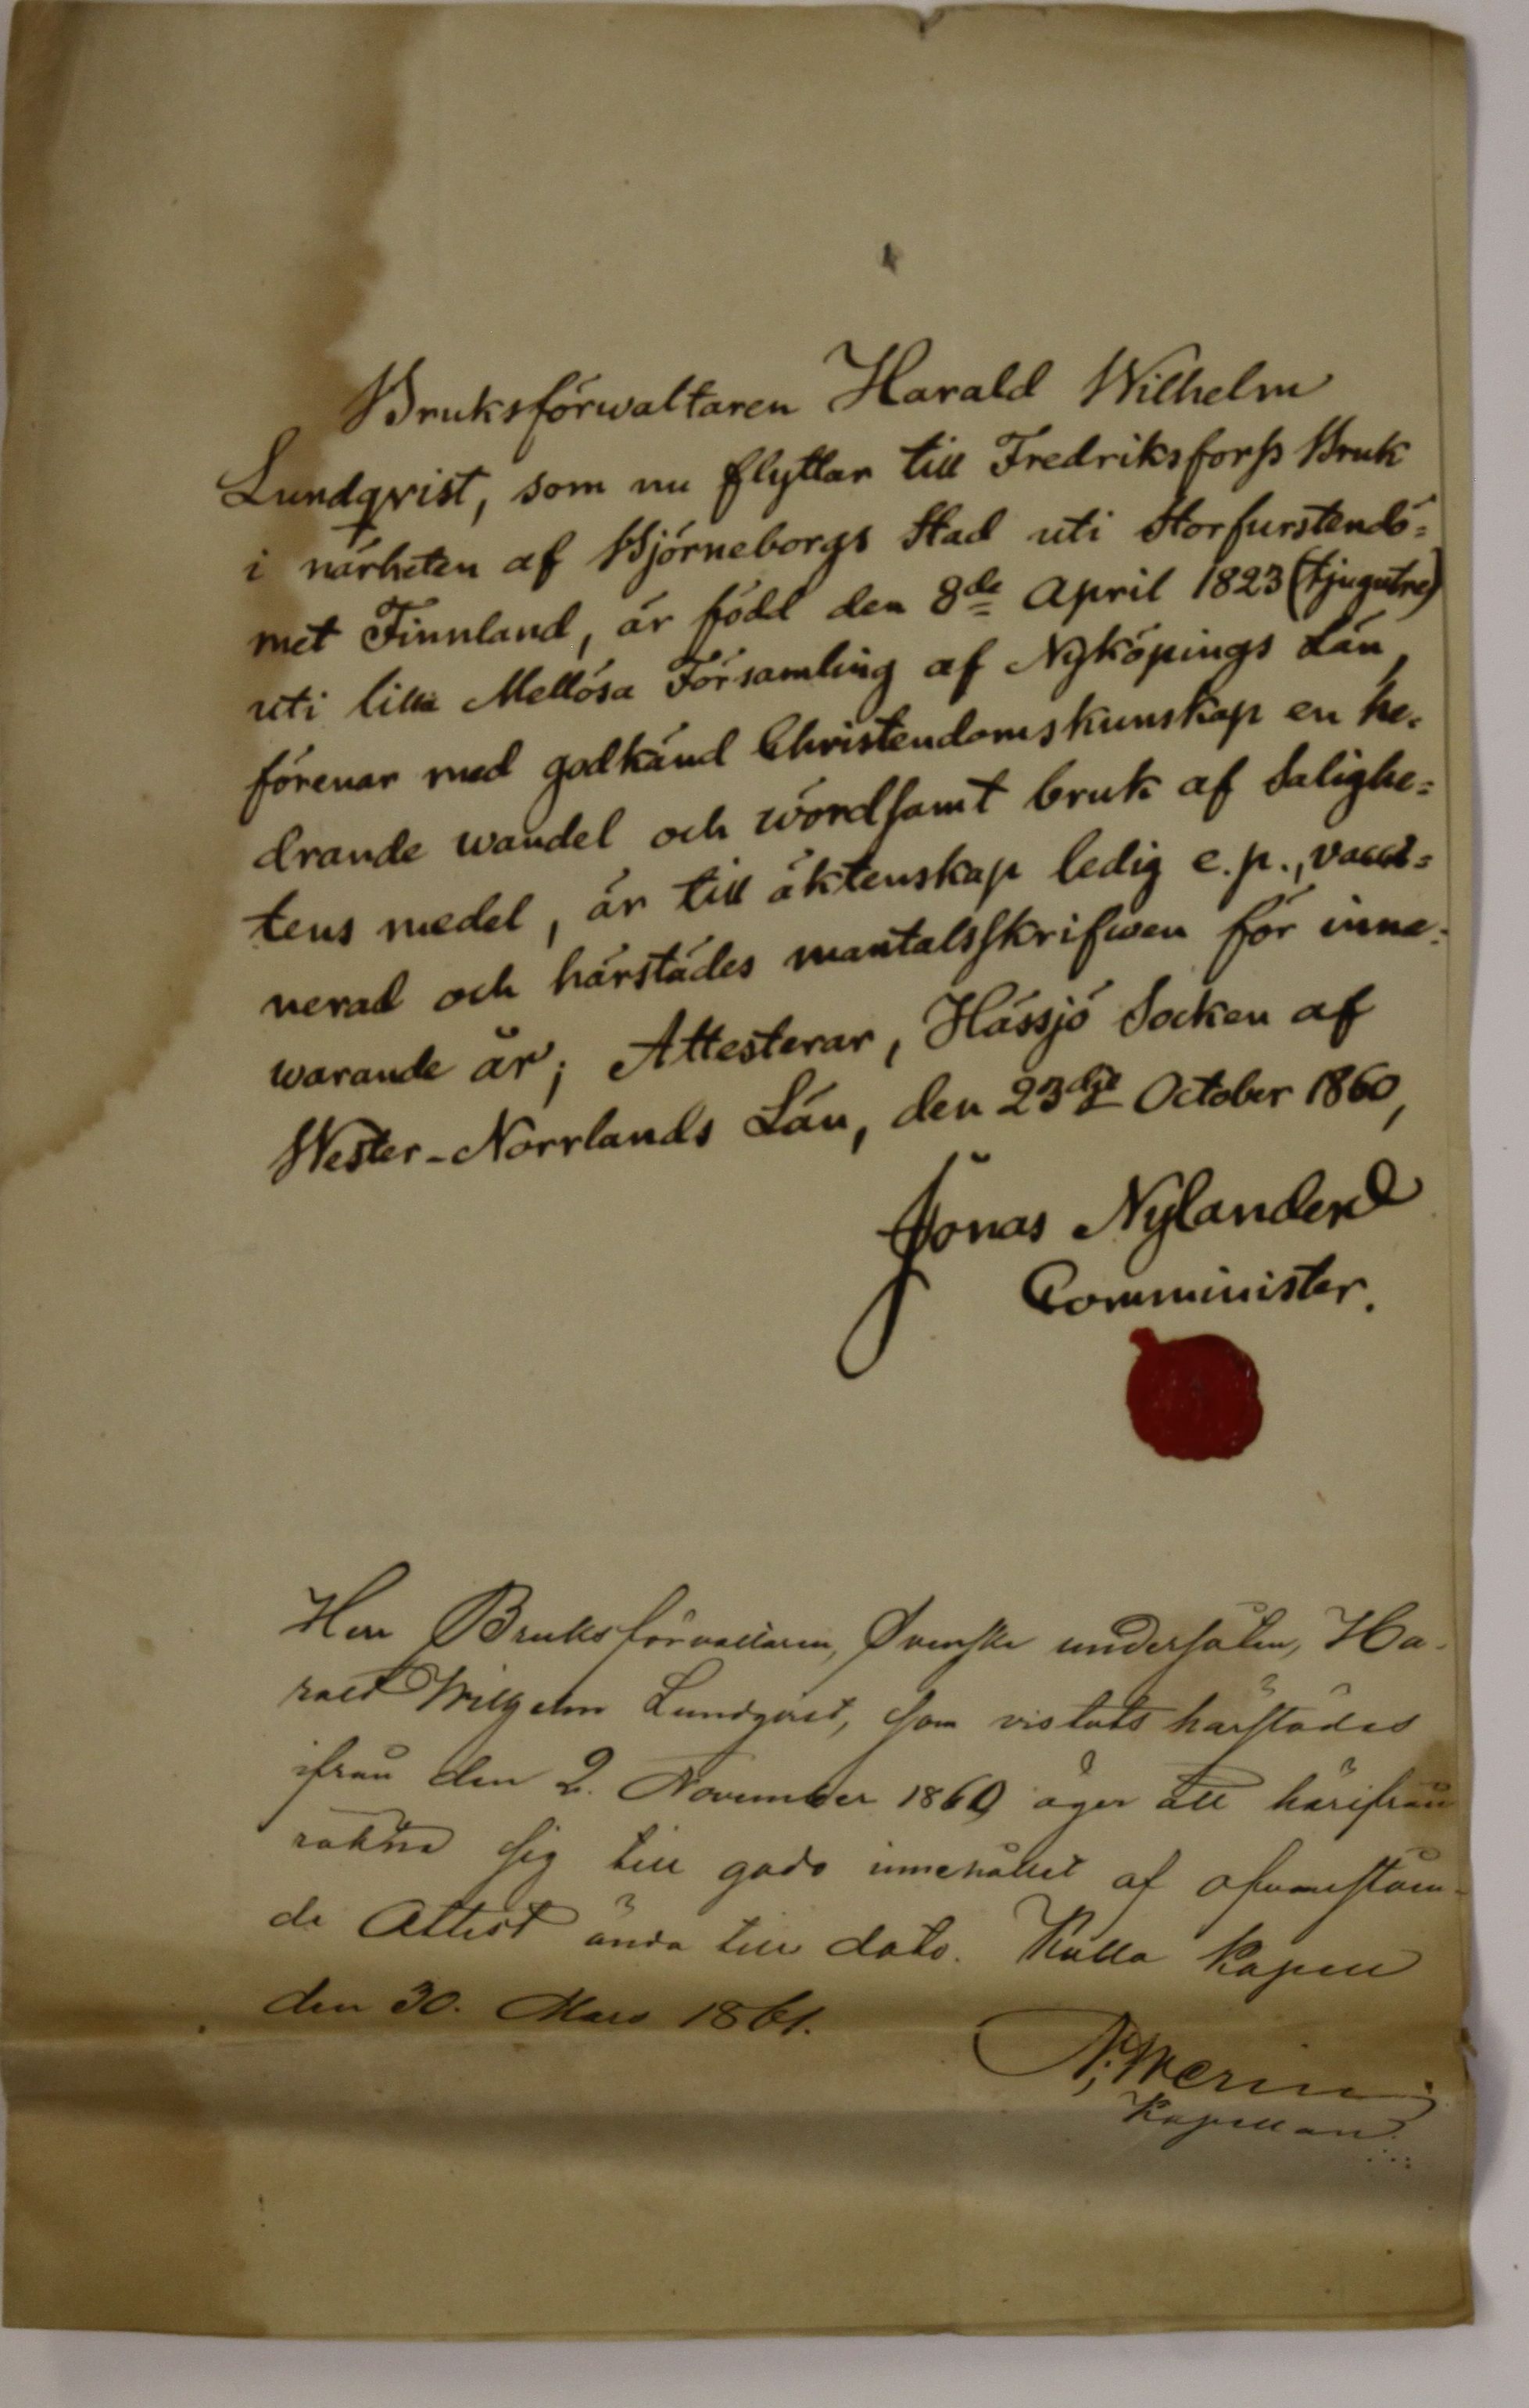 Bruksförwaltaren Harald Wilhelm
Lundqvist, som nu flyttar till Fredriksforss Bruk
i närheten af Björneborgs Stad uti Storfurstendö=
met Finnland, är född den 8de April 1823 (tjugutre)
uti lilla Mellösa Församling af Nyköpings Län,
förenar med godkänd Christendomskunskap en he=
drande wandel och wördsamt bruk af Salighe=
tens medel, är till äktenskap ledig e.p., vacci=
nerad och härstädes mantalsskrifwen för inne=
warande år; Attesterar, Hässjö Socken af
Wester-Norrlands Län, den 23dje October 1860,
Jonas Nylander
Comminister.
Herr Bruksförvaltaren, Svenske undersåten, Ha-
rald Wilhelm Lundqvist, som vistats härstädes
ifrån den 2. November 1860 äger att härifrån
räkna sig till godo innehållet af ofvanståen-
de Attest ända till dato. Kulla Kapell
den 30. Mars 1861.
Kapellan